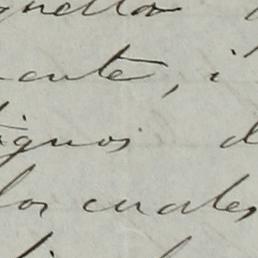 quellos
ente, i
ignos d
los cuales